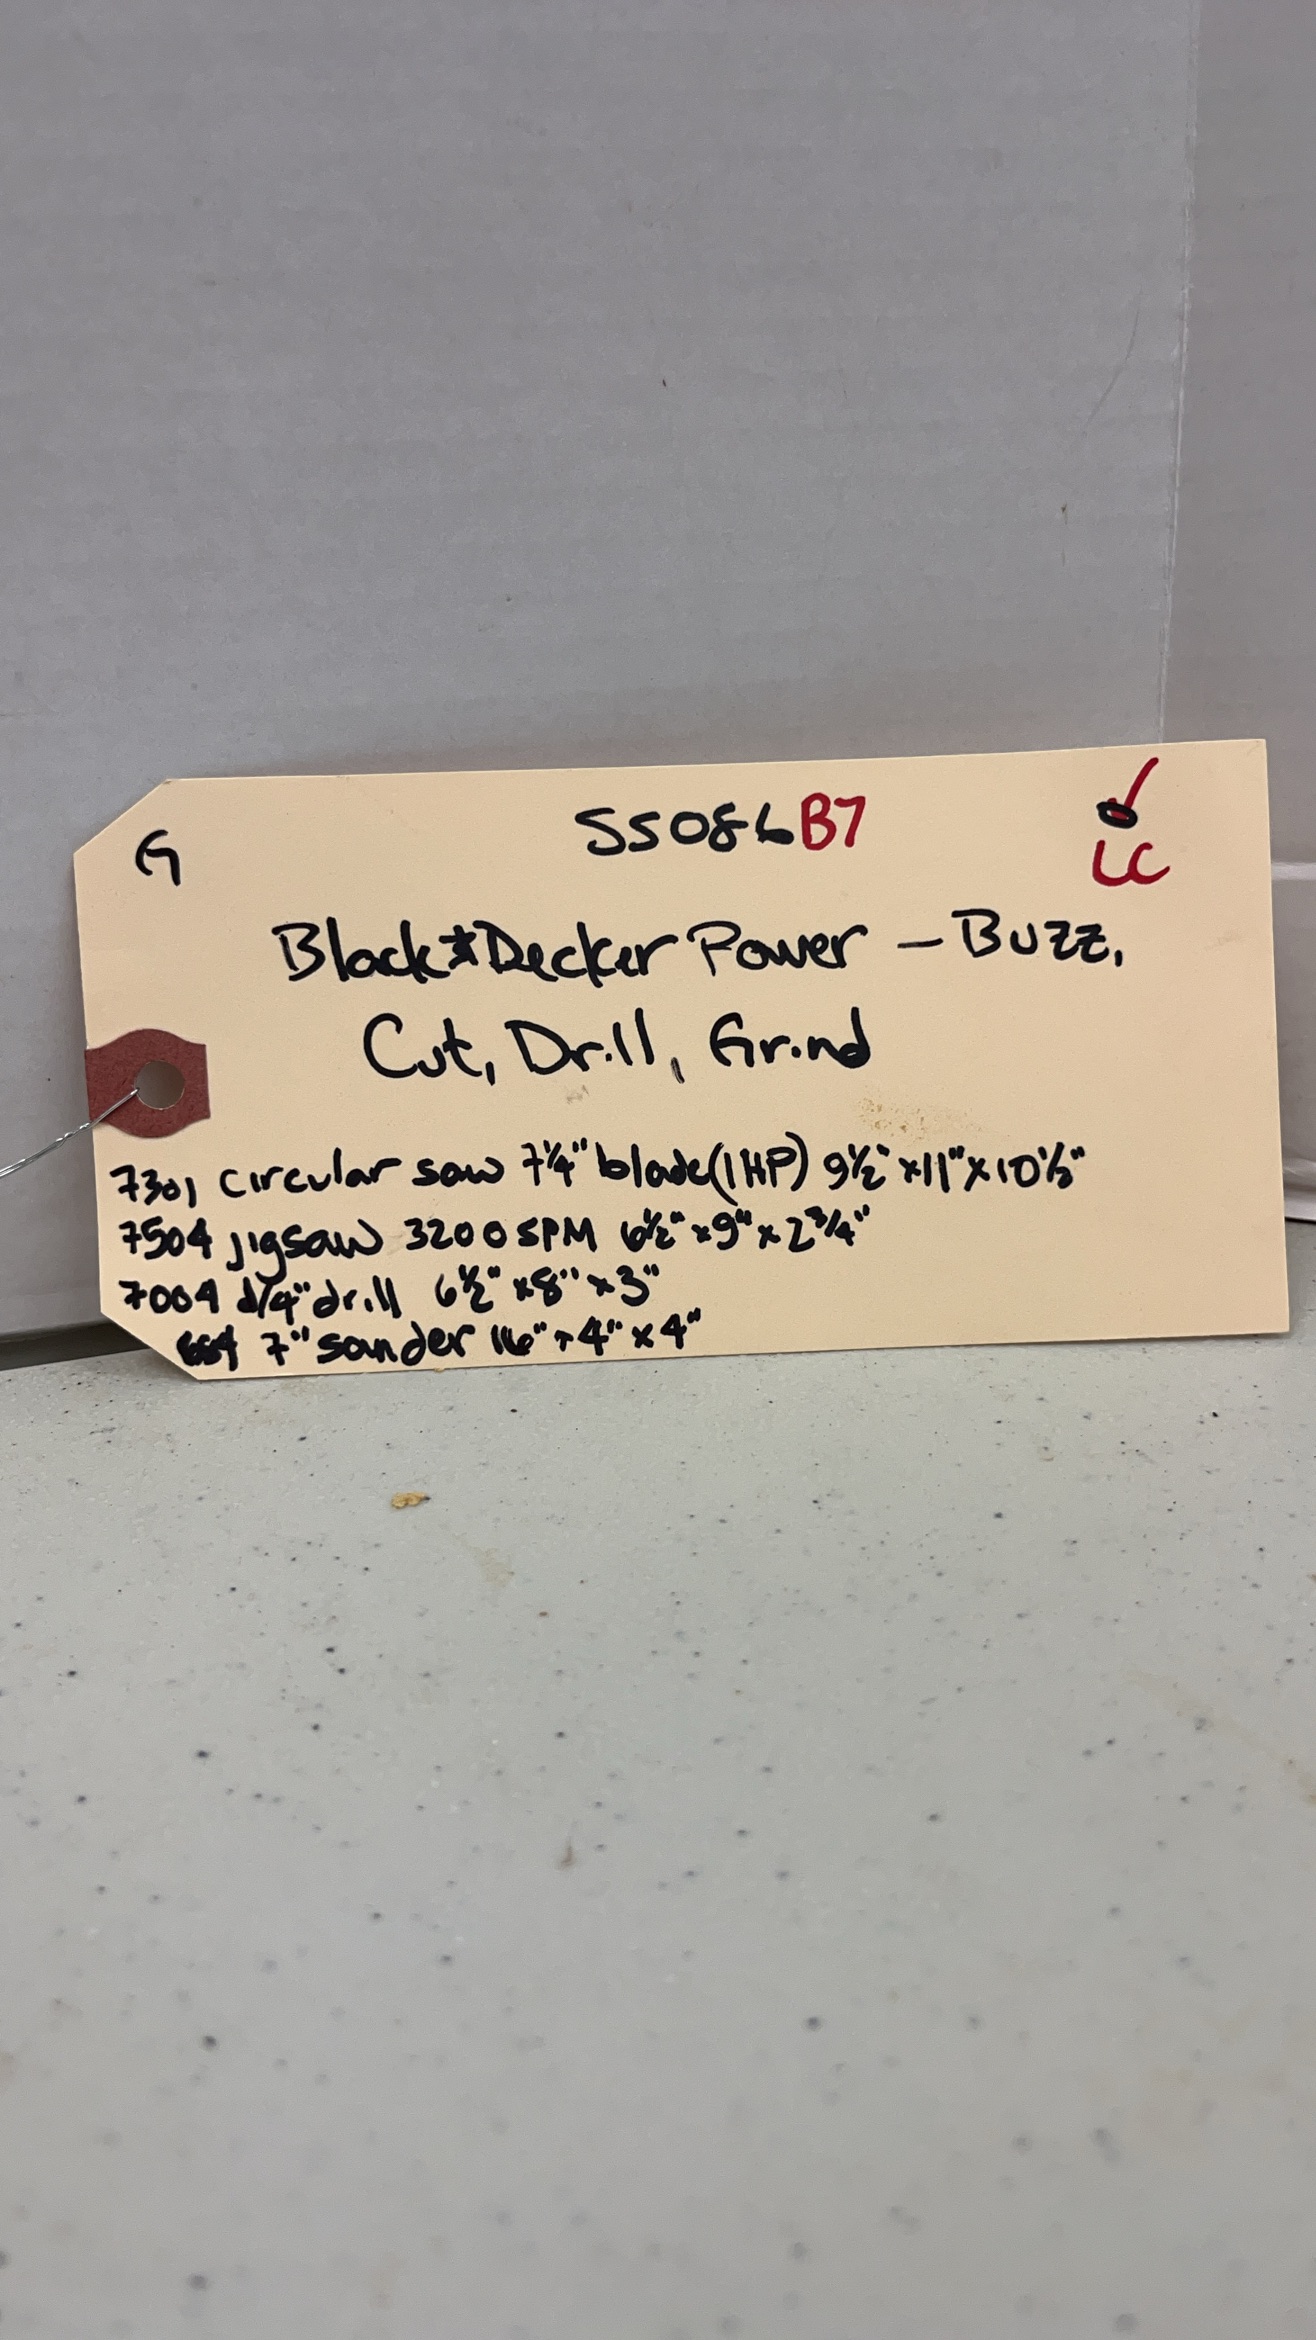 G SS086B7
LC
Black & Decker Power – Buzz,
Cut, Drill, Grind
7301 circular saw 7 1/4" blade (1 HP) 9 1/2" x 11" x 10 1/2"
7504 jigsaw 3200 SPM 6 1/2" x 9" x 2 3/4"
7004 drill 6 1/2" x 8" x 3"
7" sander 16" x 4" x 4"